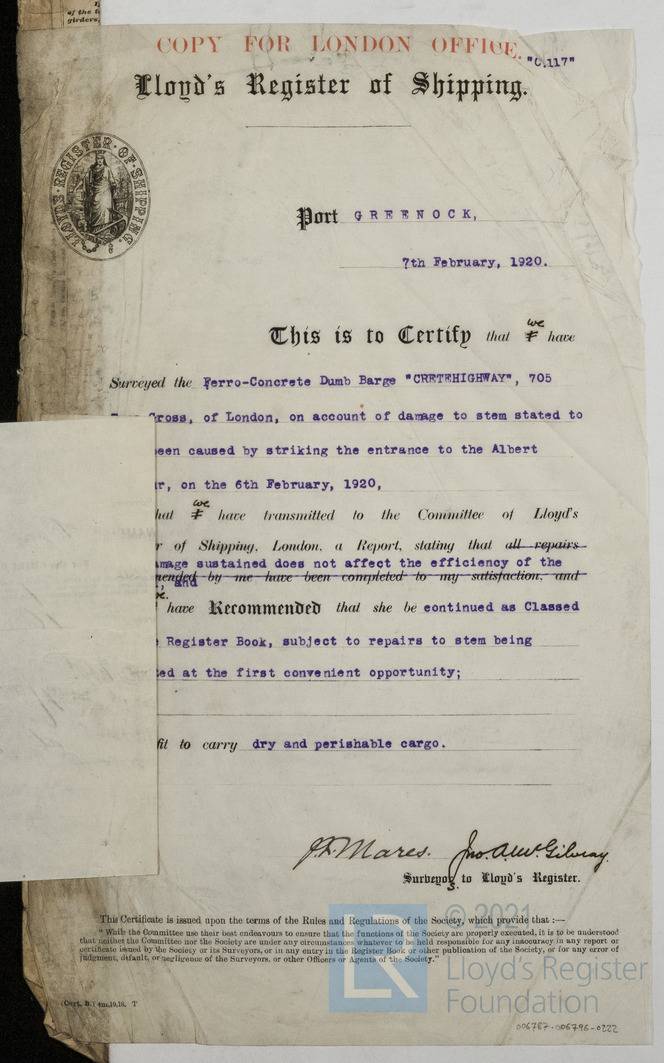 of the
girders,
COPY FOR LONDON OFFICE.
"C.117"
Lloyd's Register of Shipping.
LLOYD'S·REGISTER·OF·SHIPPING.
Port GREENOCK,
7th February, 1920.
we
This is to Certify that I have
Surveyed the Ferro-Concrete Dumb Barge "CRETEHIGHWAY", 705
Gross, of London, on account of damage to stem stated to
een caused by striking the entrance to the Albert
r, on the 6th February, 1920,
we
hat I have transmitted to the Committee of Lloyd's
r of Shipping, London, a Report, stating that all repairs
mage sustained does not affect the efficiency of the
mended by me have been completed to my satisfaction, and
, and
we.
have Recommended that she be continued as Classed
Register Book, subject to repairs to stem being
ted at the first convenient opportunity;
fit to carry dry and perishable cargo.
J.F. Mares. Jno. A. McGilvray.
Surveyors to Lloyd's Register.
This Certificate is issued upon the terms of the Rules and Regulations of the Society, which provide that :—
"While the Committee use their best endeavours to ensure that the functions of the Society are properly executed, it is to be understood
that neither the Committee nor the Society are under any circumstances whatever to be held responsible for any inaccuracy in any report or
certificate issued by the Society or its Surveyors, or in any entry in the Register Book or other publication of the Society, or for any error of
judgment, default, or negligence of the Surveyors, or other Officers or Agents of the Society."
(Cert. B.) 4m,10,18. T
© 2021
Lloyd's Register
Foundation
006787-006796-0222